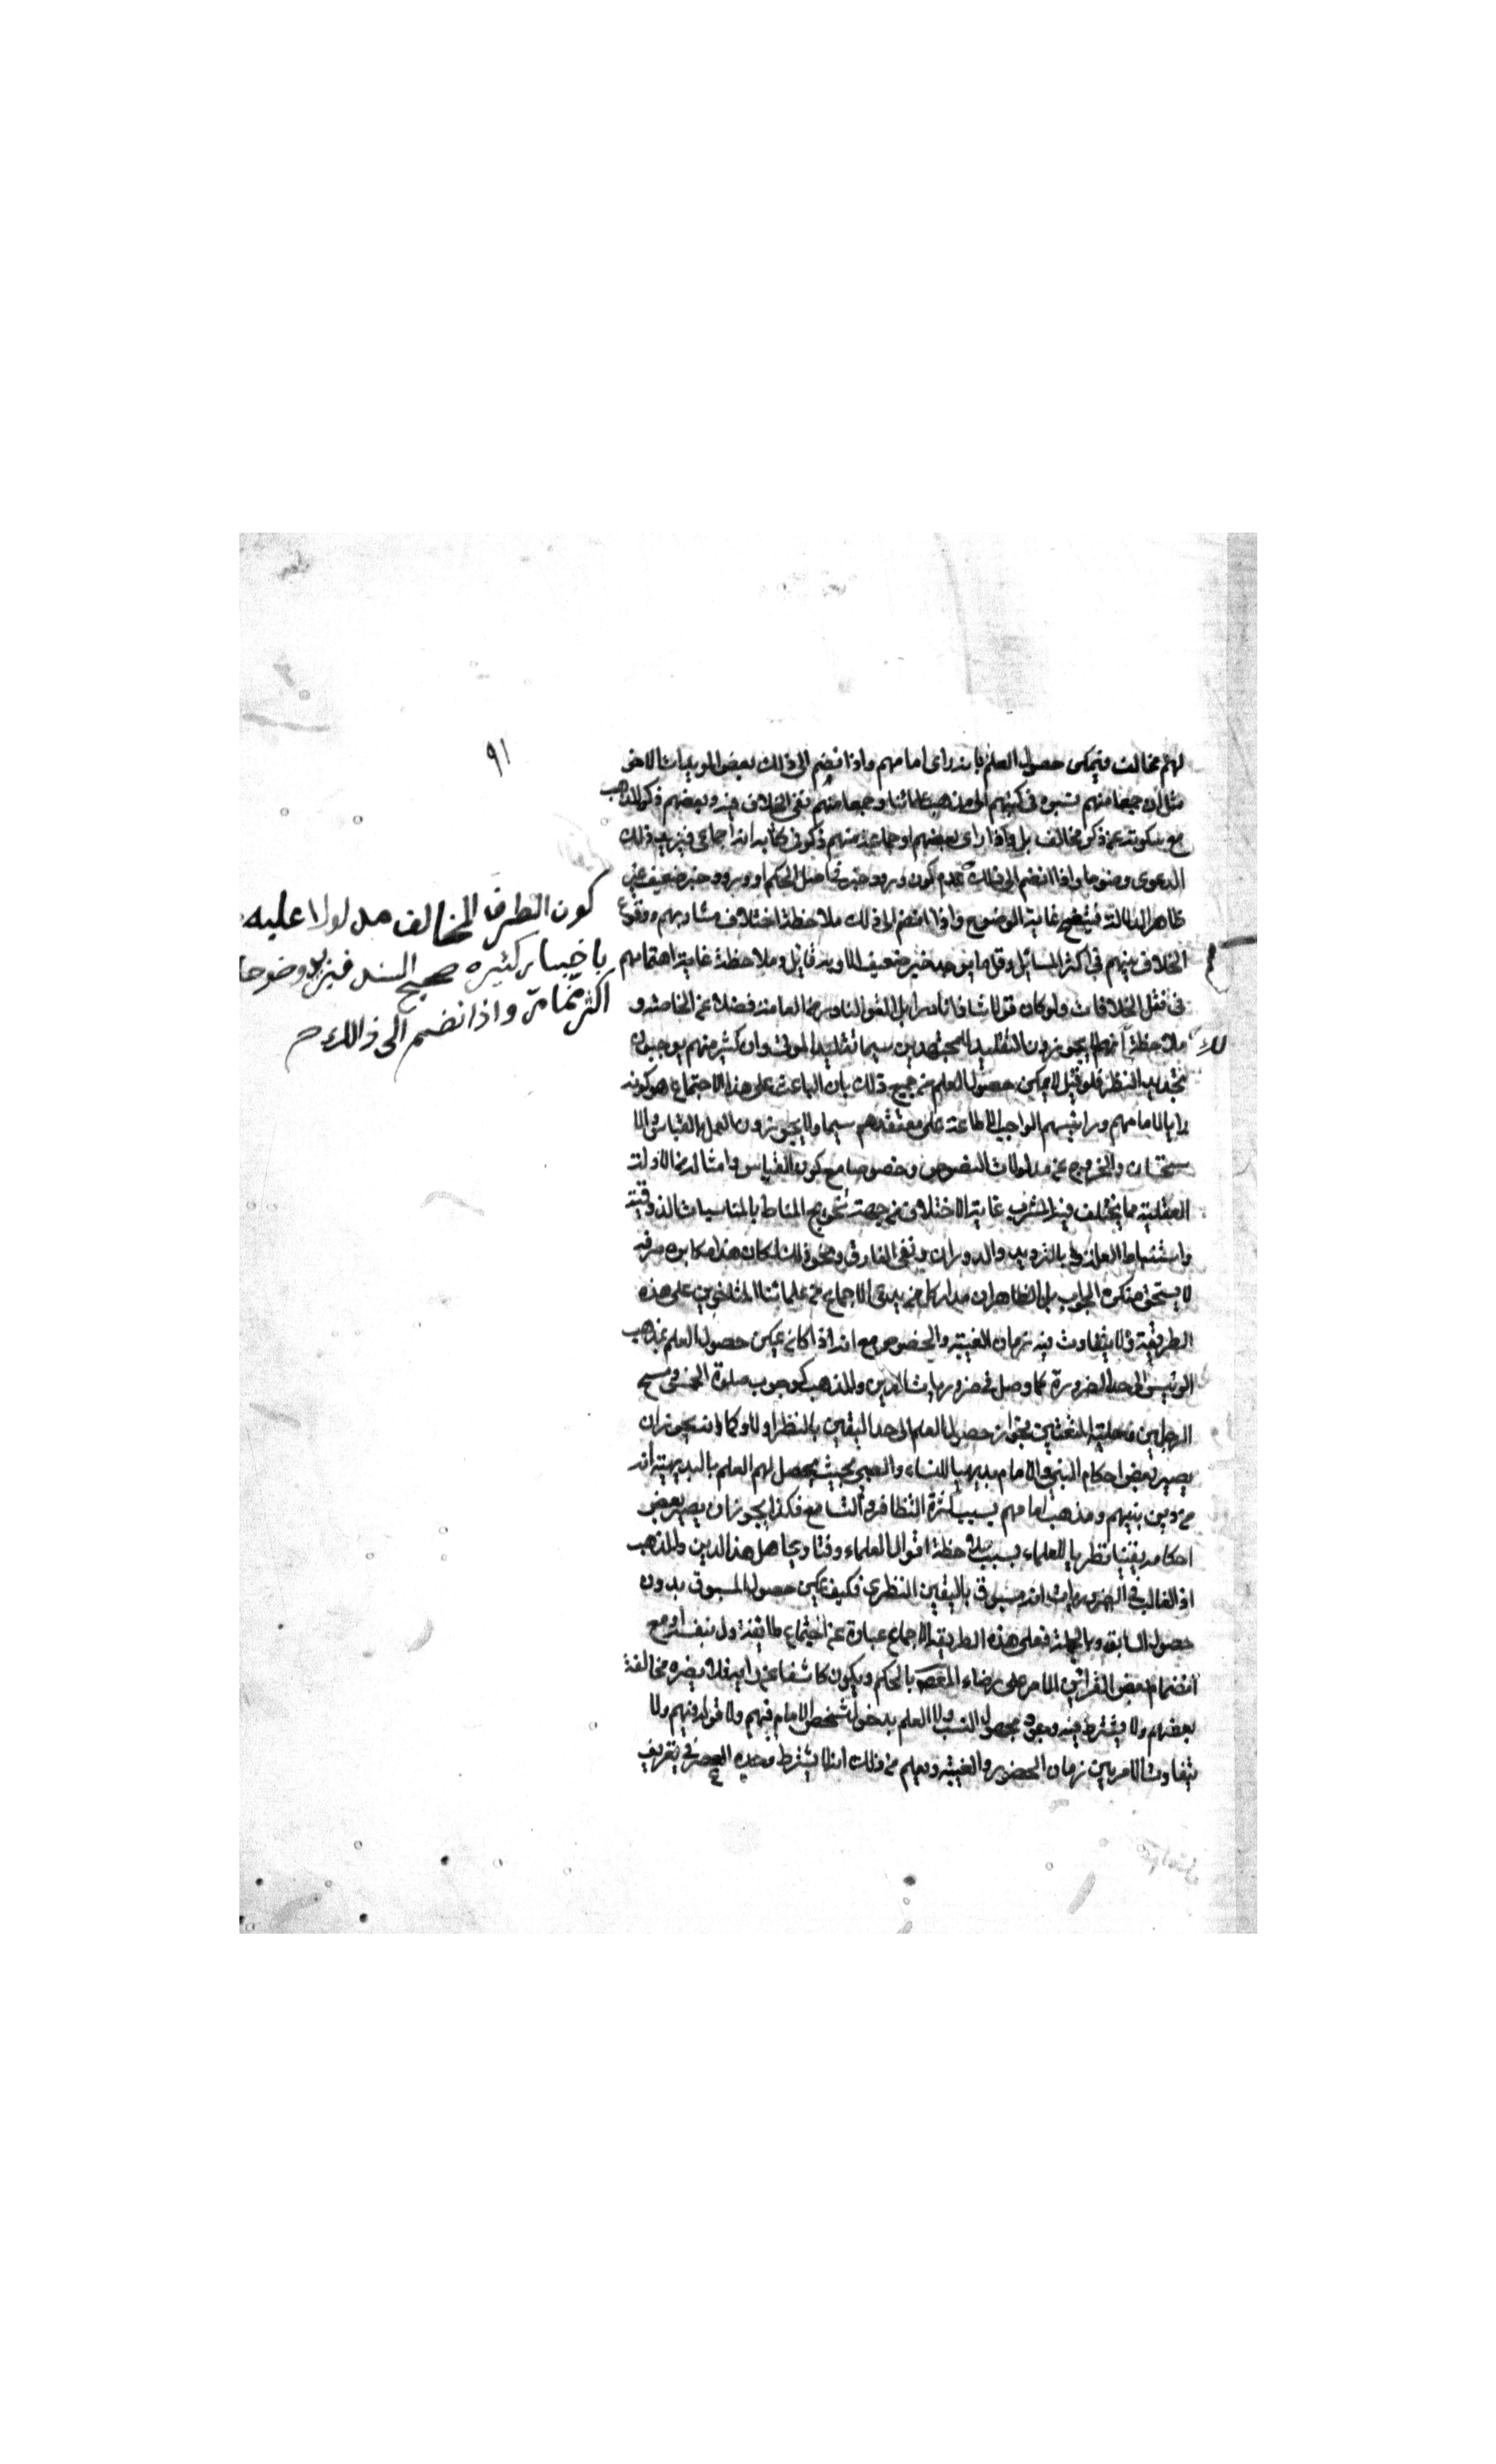 ٩١
لهم مخالف فيمكن حصول العلم بانه راى امامهم واذا انضم الى ذلك بعض المويدات الاخر
مثل ان جمعا منهم نسبوه فى كتبهم الى مذهب علمائنا وجمعا منهم نفى الخلاف فيه وبعضهم ذكر المذهب
مع سكوته عن ذكر مخالف بل وكذا راى بعضهم او جماعة منهم ذكر فى كتابه انه اجماعى فيزيد ذلك
الدعوى وضوحا واذا انضم الى ذلك عدم كون ورود خبر فى اصل الحكم او ورود خبر ضعيف غير
ظاهر الدلالة فيتضح غاية الوضوح واذا انضم الى ذلك ملاحظة اختلاف مشاربهم ووقوع
الخلاف بينهم فى اكثر المسائل وقل ما يوجد خبر ضعيف الا وبه قايل وملاحظة غاية اهتمامهم
فى نقل الخلافات ولو كان قولا شاذا نادرا بل القول النادر من العامة فضلا عن الخاصة و
ملاحظة انهم لا يجوزون التقليد للمجتهدين سيما تقليد الموتى وان كثير منهم يوجبون
تجديد النظر فلو قيل لا يمكن حصول العلم من جميع ذلك بان الباعث على هذا الاجتماع هو كونه
رايا لامامهم ورئيسهم الواجب الاطاعة على معتقدهم سيما ولا يجوزون العمل بالقياس والا
ستحسان والخروج عن مدلولات النصوص وخصوصا مع كون القياس وامثاله من الادلة
العقلية مما يختلف فيه المشرب غاية الاختلاف من جهة تخريج المناط بالمناسبات الذوقية
واستنباط العلة بالترديد والدوران ونفى الفارق ونحو ذلك لكان هذا مكابرة صرفة
لا يستحق منكره الجواب بل الظاهر ان مدار كل من يدعى الاجماع من علمائنا المتاخرين على هذه
الطريقة ولا يتفاوت فيه زمان الغيبة والحضور مع انه اذا كان يمكن حصول العلم بمذهب
الرئيس الى حد الضرورة كما وصل فى ضروريات الدين والمذهب كوجوب صلوة الخمس ومسح
الرجلين وحلية المتعتين فيجوز حصول العلم الى حد اليقين بالنظر اولا وكما انه يجوز ان
يصير بعض احكام النبى والامام بديهيا للنساء والصبى بحيث يحصل لهم العلم بالبديهة انه
من دين نبيهم ومذهب امامهم بسبب كثرة التظافر والتسامع فكذا يجوز ان يصير بعض
احكامه يقينيا نظريا للعلماء بسبب ملاحظة اقوال العلماء وفتاوى اهل هذا الدين والمذهب
اذ الغالب فى الضروريات انه مسبوق باليقين النظرى فكيف يمكن حصول المسبوق بدون
حصول السابق وبالجملة فعلى هذه الطريقة الاجماع عبارة عن اجتماع طائفة دل بنفسه او مع
انضمام بعض القرائن الاخر على رضاء المعصوم بالحكم ويكون كاشفا عن رايه فلا يضره مخالفة
بعضهم ولا يشترط فيه وجود مجهول النسب ولا العلم بدخول شخص الامام فيهم ولا قوله فيهم ولا
يتفاوت الامر بين زمان الحضور والغيبة ويعلم من ذلك انه لا يشترط وحدة العصر فى تعريف
كون الطرف المخالف مدلولا عليه
باخبار كثيره صحيح السند فيزيد وضوحا
اكثر مما مر واذا نضم الى ذالك